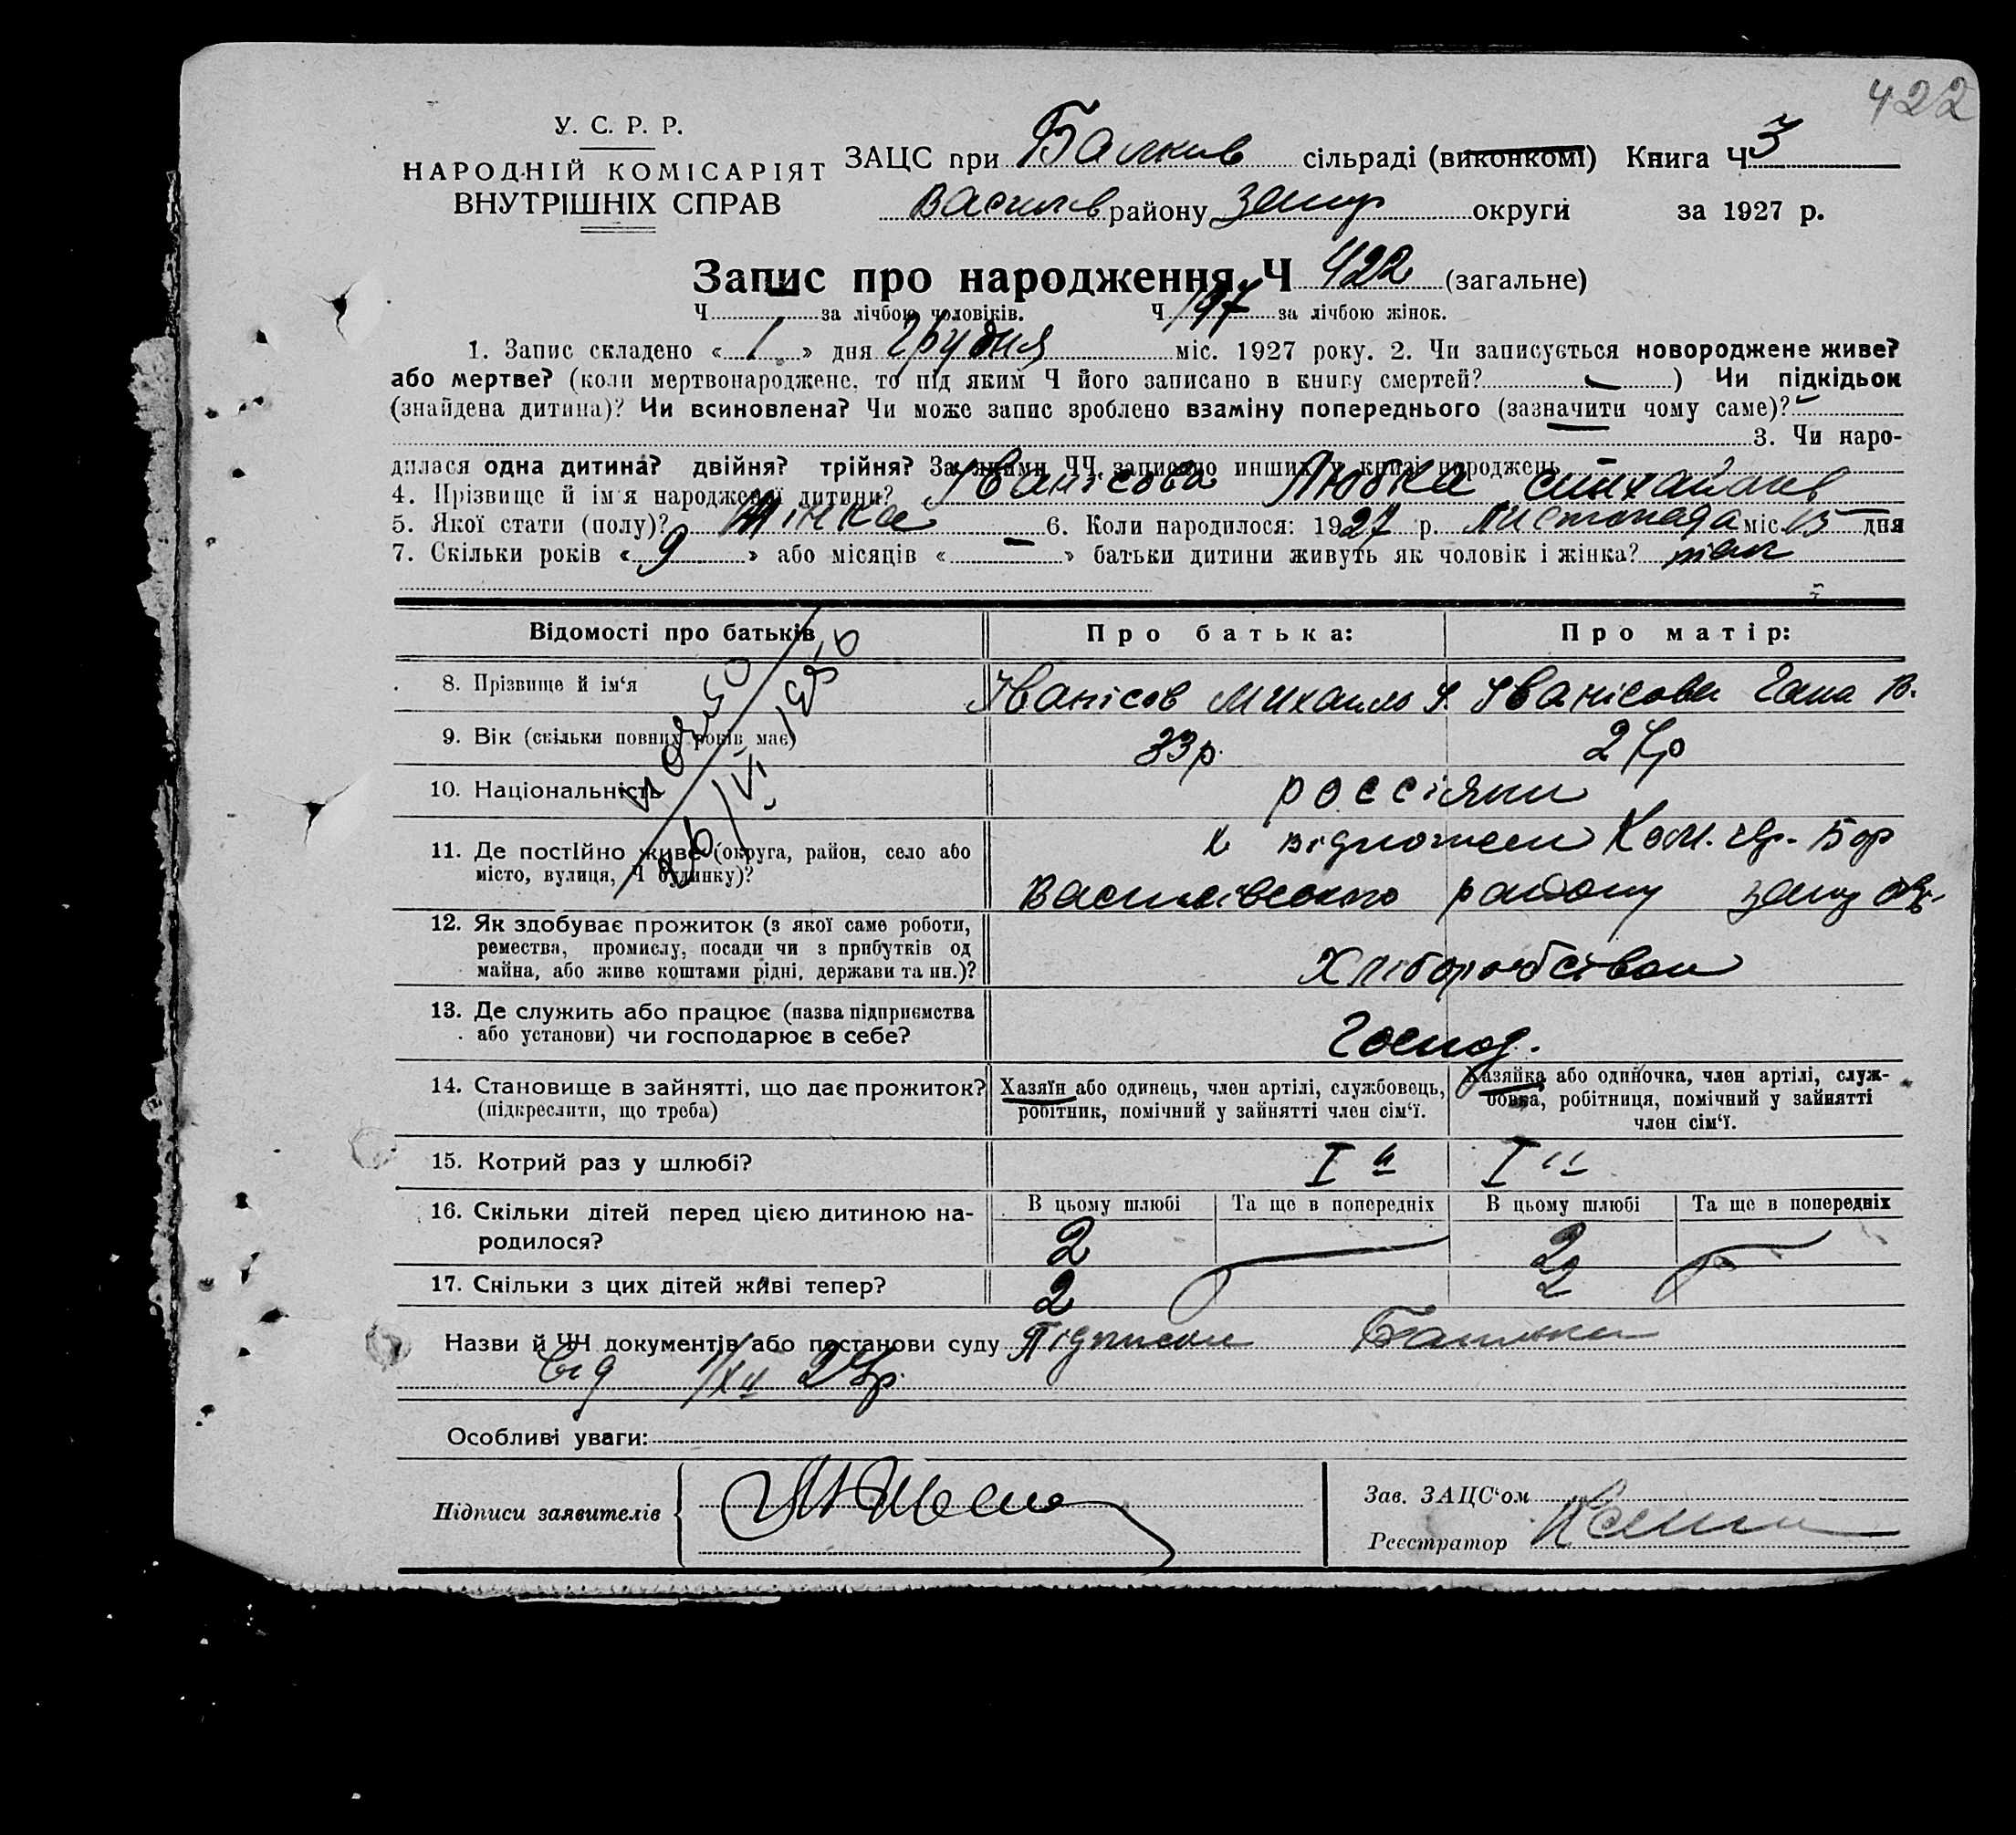 422
У. С. Р. Р.
НАРОДНІЙ КОМІСАРІЯТ
ВНУТРІШНІХ СПРАВ
ЗАЦС при Балків сільраді (виконкомі) Книга Ч 3
Василів району Запор округи за 1927 р.
Запис про народження Ч 422 (загальне)
Ч за лічбою чоловіків. Ч 197 за лічбою жінок.
1. Запис складено « 1 » дня Грудня міс. 1927 року. 2. Чи записується новороджене живе?
або мертве? (коли мертвонароджене, то під яким Ч його записано в книгу смертей? ) Чи підкідьок
(знайдена дитина)? Чи всиновлена? Чи може запис зроблено взаміну попереднього (зазначити чому саме)?
3. Чи наро-
дилася одна дитина? двійня? трійня? За якими ЧЧ записано инших у книзі народжень
4. Прізвище й ім'я народженої дитини? Іванісова Любка
5. Якої статі (полу)? Жінка 6. Коли народилося: 1927 р. Листопада міс. 15 дня
7. Скільки років « 9 » або місяців « — » батьки дитини живуть як чоловік і жінка? так
Відомості про батьків Про батька: Про матір:
8. Прізвище й ім‘я Іванісов Михаило Іванісова Гана В.
9. Вік (скільки повних років має) 33р. 27р
10. Національність россіяни
11. Де постійно живе (округа, район, село або
місто, вулиця, Ч будинку)?
Василівського району
12. Як здобуває прожиток (з якої саме роботи,
ремества, промислу, посади чи з прибутків од
майна, або живе коштами рідні, держави та ин.)? Хліборобством
13. Де служить або працює (назва підприємства
або установи) чи господарює в себе? Господ.
14. Становище в зайнятті, що дає прожиток?
(підкреслити, що треба)
Хазяїн або одинець, член артілі, службовець,
робітник, помічний у зайнятті член сім‘ї.
Хазяйка або одиночка, член артілі, служ-
бовка, робітниця, помічний у зайнятті
член сім‘ї.
15. Котрий раз у шлюбі? I й I й
16. Скільки дітей перед цією дитиною на-
родилося?
В цьому шлюбі Та ще в попередніх В цьому шлюбі Та ще в попередніх
2 2
17. Скільки з цих дітей живі тепер? 2 2
Назви й ЧЧ документів або постанови суду Підписом Батька
від 1/XII 27р.
Особливі уваги:
Підписи заявителів
Зав. ЗАЦС‘ом
Реєстратор